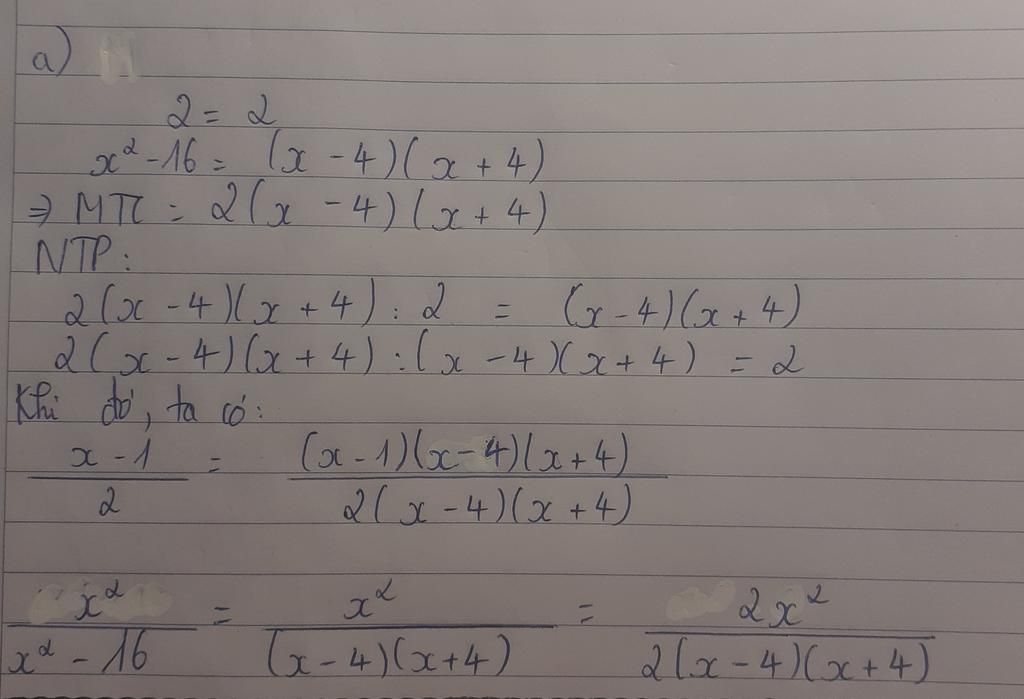 a)
2 = 2
x² - 16 = (x - 4)(x + 4)
⇒ MTC = 2(x - 4)(x + 4)
NTP:
2(x - 4)(x + 4) : 2 = (x - 4)(x + 4)
2(x - 4)(x + 4) : (x - 4)(x + 4) = 2
Khi đó, ta có:
(x - 1)/2 = (x - 1)(x - 4)(x + 4)/2(x - 4)(x + 4)
x²/(x² - 16) = x²/(x - 4)(x + 4) = 2x²/2(x - 4)(x + 4)